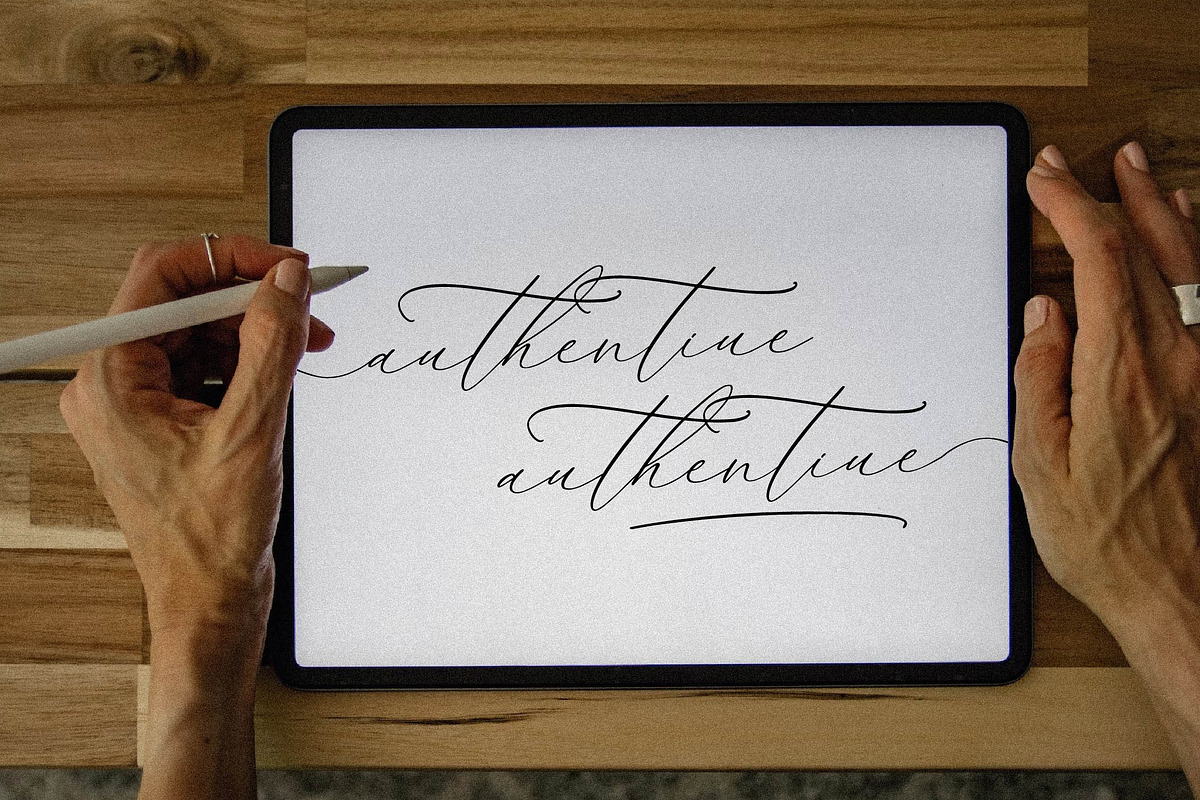 authentiue
authentiue